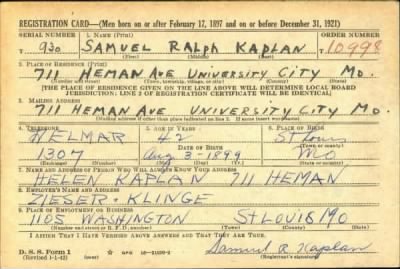 REGISTRATION CARD—(Men born on or after February 17, 1897 and on or before December 31, 1921)
SERIAL NUMBER 1. NAME (Print) ORDER NUMBER
T 930 SAMUEL RALPH KAPLAN T10998
(First) (Middle) (Last)
2. PLACE OF RESIDENCE (Print)
711 HEMAN AVE UNIVERSITY CITY MO.
(Number and street) (Town, township, village, or city) (County) (State)
[THE PLACE OF RESIDENCE GIVEN ON THE LINE ABOVE WILL DETERMINE LOCAL BOARD
JURISDICTION; LINE 2 OF REGISTRATION CERTIFICATE WILL BE IDENTICAL]
3. MAILING ADDRESS
711 HEMAN AVE UNIVERSITY CITY MO.
[Mailing address if other than place indicated on line 2. If same insert word same]
4. TELEPHONE 5. AGE IN YEARS 6. PLACE OF BIRTH
WELMAR 42 St Louis
DATE OF BIRTH (Town or county)
1307 Aug 3 - 1899 MO
(Exchange) (Number) (Mo.) (Day) (Yr.) (State or country)
7. NAME AND ADDRESS OF PERSON WHO WILL ALWAYS KNOW YOUR ADDRESS
HELEN KAPLAN 711 HEMAN
8. EMPLOYER'S NAME AND ADDRESS
ZIESER + KLINGE
9. PLACE OF EMPLOYMENT OR BUSINESS
1105 WASHINGTON ST LOUIS MO
(Number and street or R. F. D. number) (Town) (County) (State)
I AFFIRM THAT I HAVE VERIFIED ABOVE ANSWERS AND THAT THEY ARE TRUE.
D. S. S. Form 1
(Revised 1-1-42) (over) Samuel R. Kaplan
(Registrant's signature)